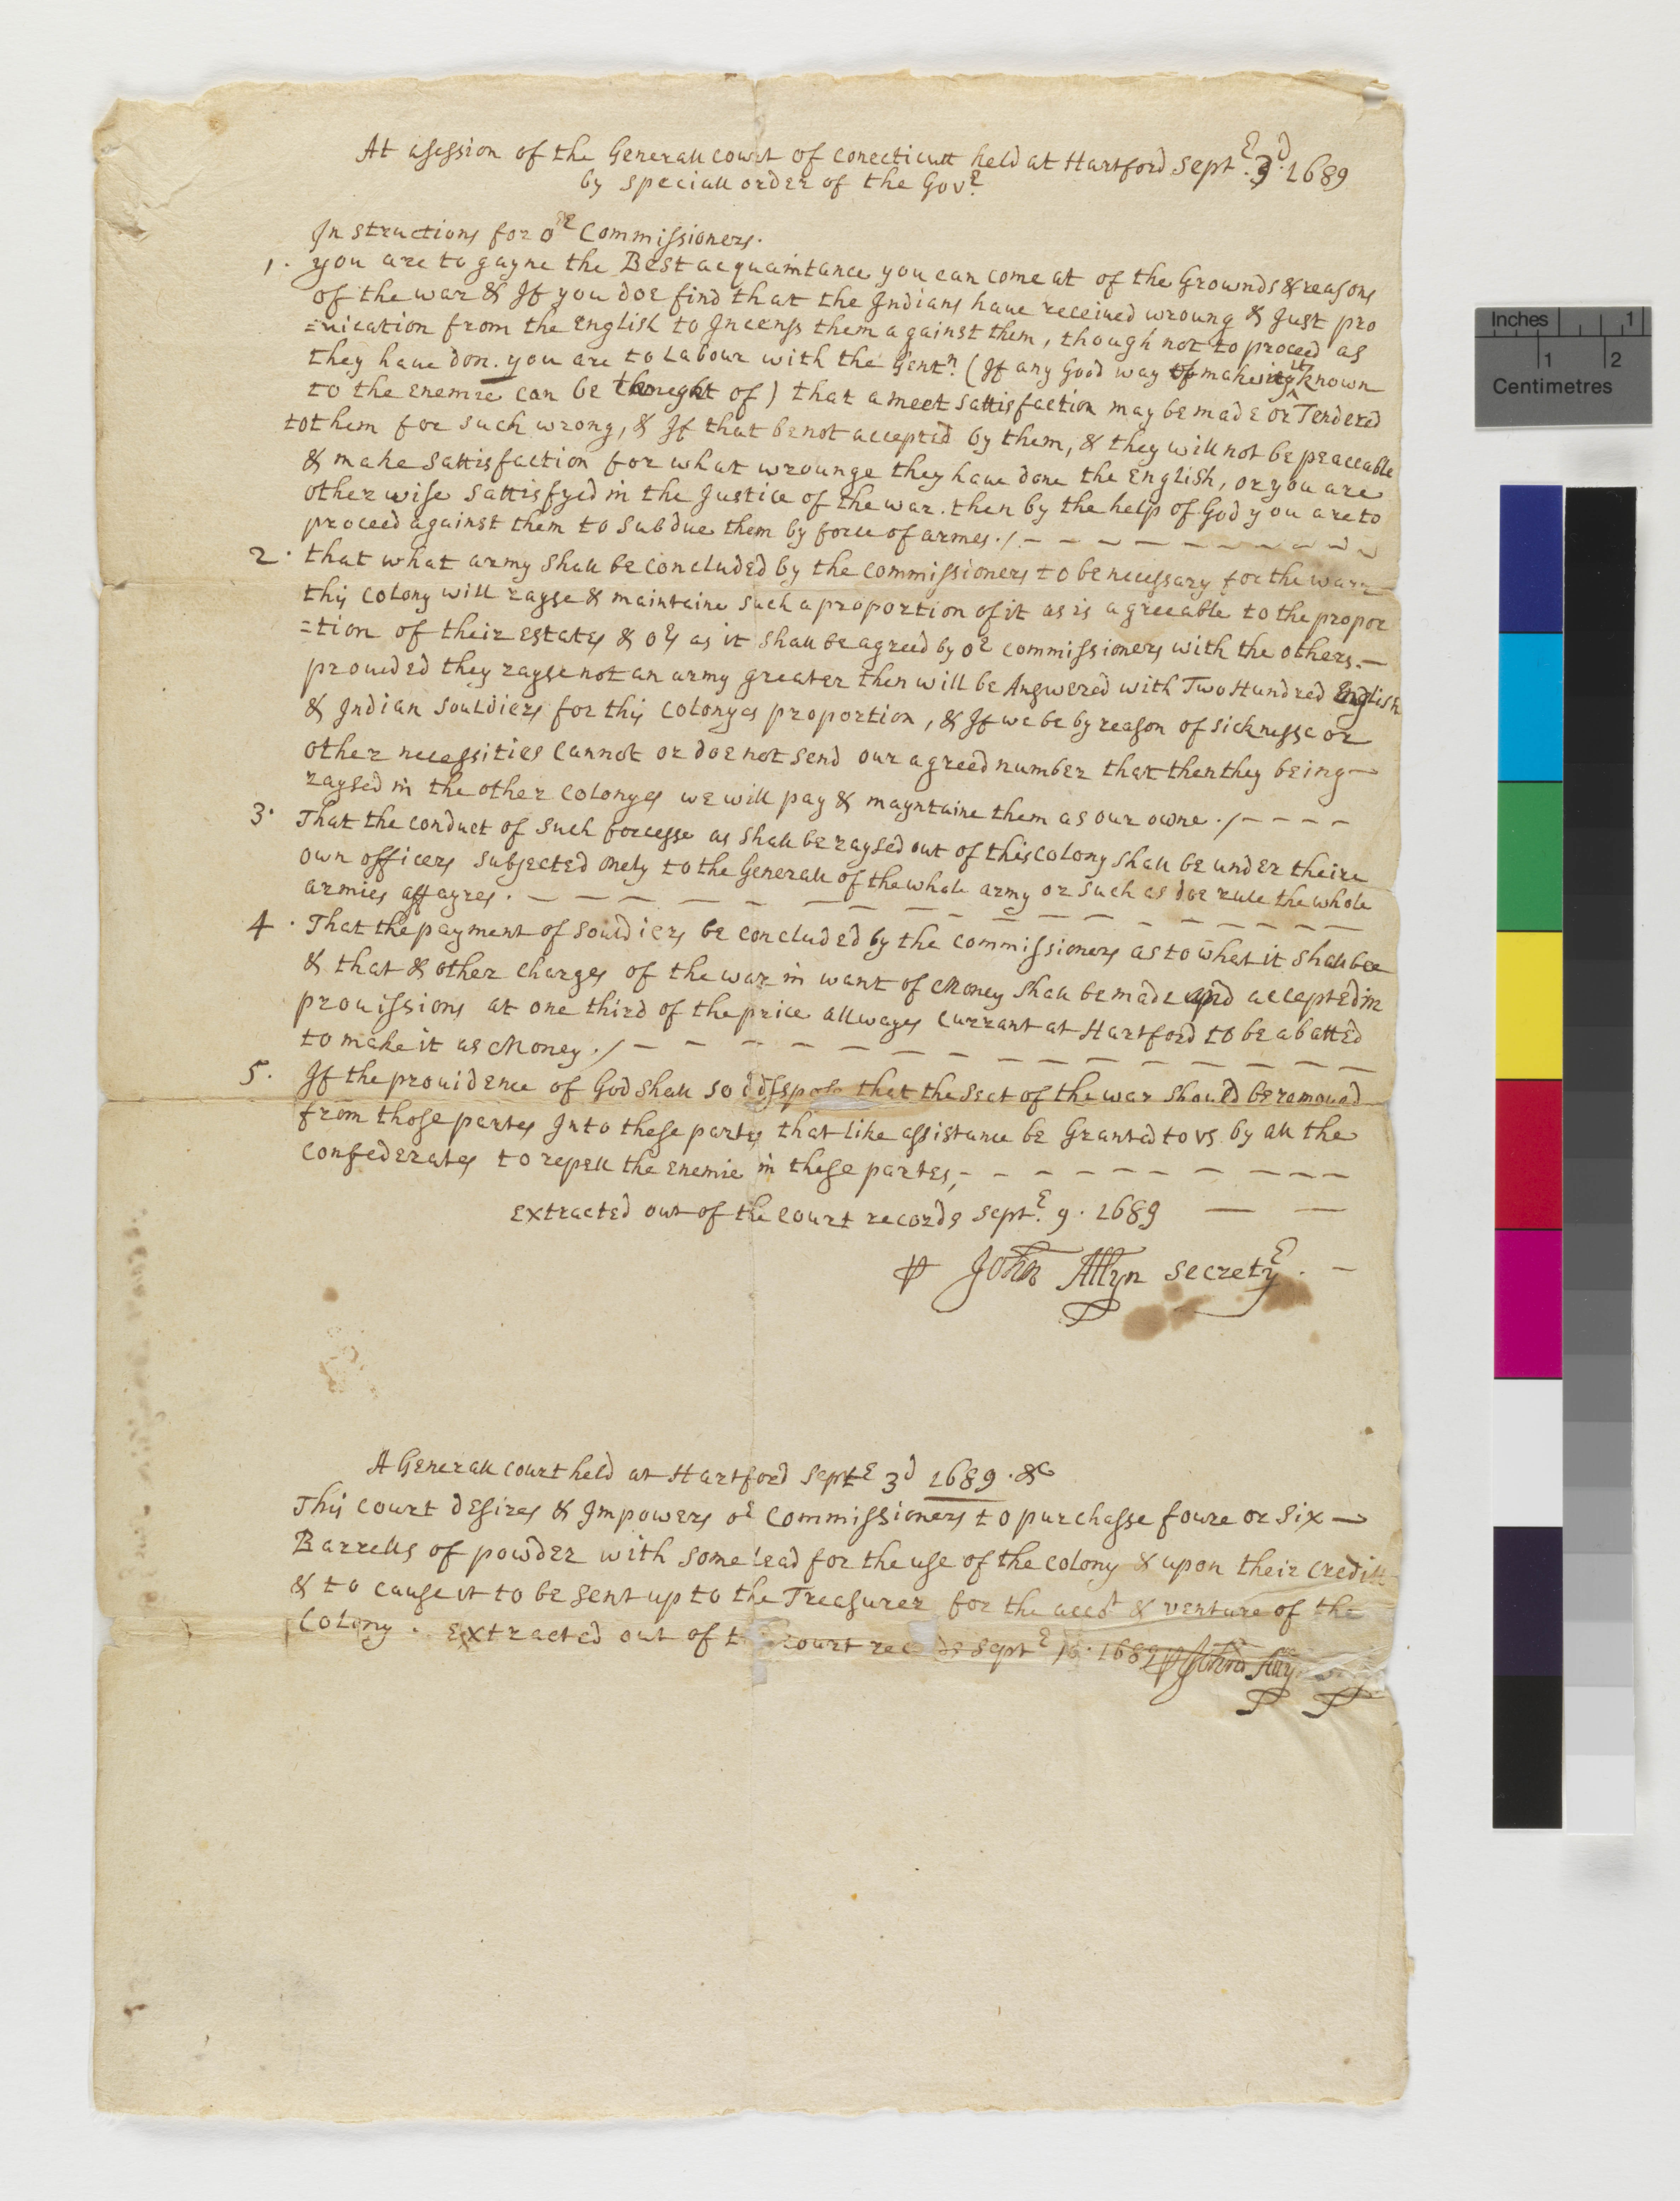 At a session of the Generall court of conecticutt held at Hartford Septr. 3d. 1689
by speciall order of the Govr.
Instructions for or Commissioners.
1. you are to gayne the Best acquaintance you can come at of the Grownds & reasons
of the war & If you doe find that the Indians haue received wroung & Just pro
=uication from the English to Incenss them against them, though not to proceed as
they haue don. you are to Labour with the Gentn. (If any Good way of making it known
to the enemie can be thought of) that a meet sattisfaction may be made or Tendered
to them for such wrong, & If that be not accepted by them, & they will not be peaceable
& make sattisfaction for what wrounge they haue done the English, or you are
otherwise sattisfyed in the Justice of the war. then by the help of God you are to
proceed against them to subdue them by force of armes./.
2. that what army shall be concluded by the commissioners to be necessary for the warr
this colony will rayse & maintaine such a proportion of it as is agreeable to the propor
=tion of their estates & os as it shall be agreed by or commissioners with the others.—
prouided they rayse not an army greater then will be Answered with Two Hundred English
& Indian souldiers for this colonyes proportion, & If we be by reason of sicknesse or
other necessities cannot or doe not send our agreed number that then they being—
raysed in the other colonyes we will pay & mayntaine them as our owne./
3. That the conduct of such forcesse as shall be raysed out of this colony shall be under theire
own officers subjected onely to the Generall of the whole army or such as doe rule the whole
armies affayres.
4. That the payment of souldiers be concluded by the commissioners as to what it shall bee
& that & other charges of the war in want of Money shall be made and accepted in
prouissions at one third of the price allwayes currant at Hartford to be abatted
to make it as Money./
5. If the prouidence of God shall so disspose that the seat of the war should be remoued
from those partes Into these partes that like assistance be Granted to vs by all the
confederates to repell the enemie in these partes,
extracted out of the court records Septr. 9. 1689
℘ John Allyn secretyr.
A Generall court held at Hartford Septr 3d 1689. &c
This court desires & Impowers or Commissioners to purchasse foure or six—
Barrells of powder with some lead for the use of the colony & upon their creditt
& to cause it to be sent up to the Treasurer for the accot & venture of the
Colony. Extracted out of court Septr 1689 ℘ John
Inches 1
1 2
Centimetres